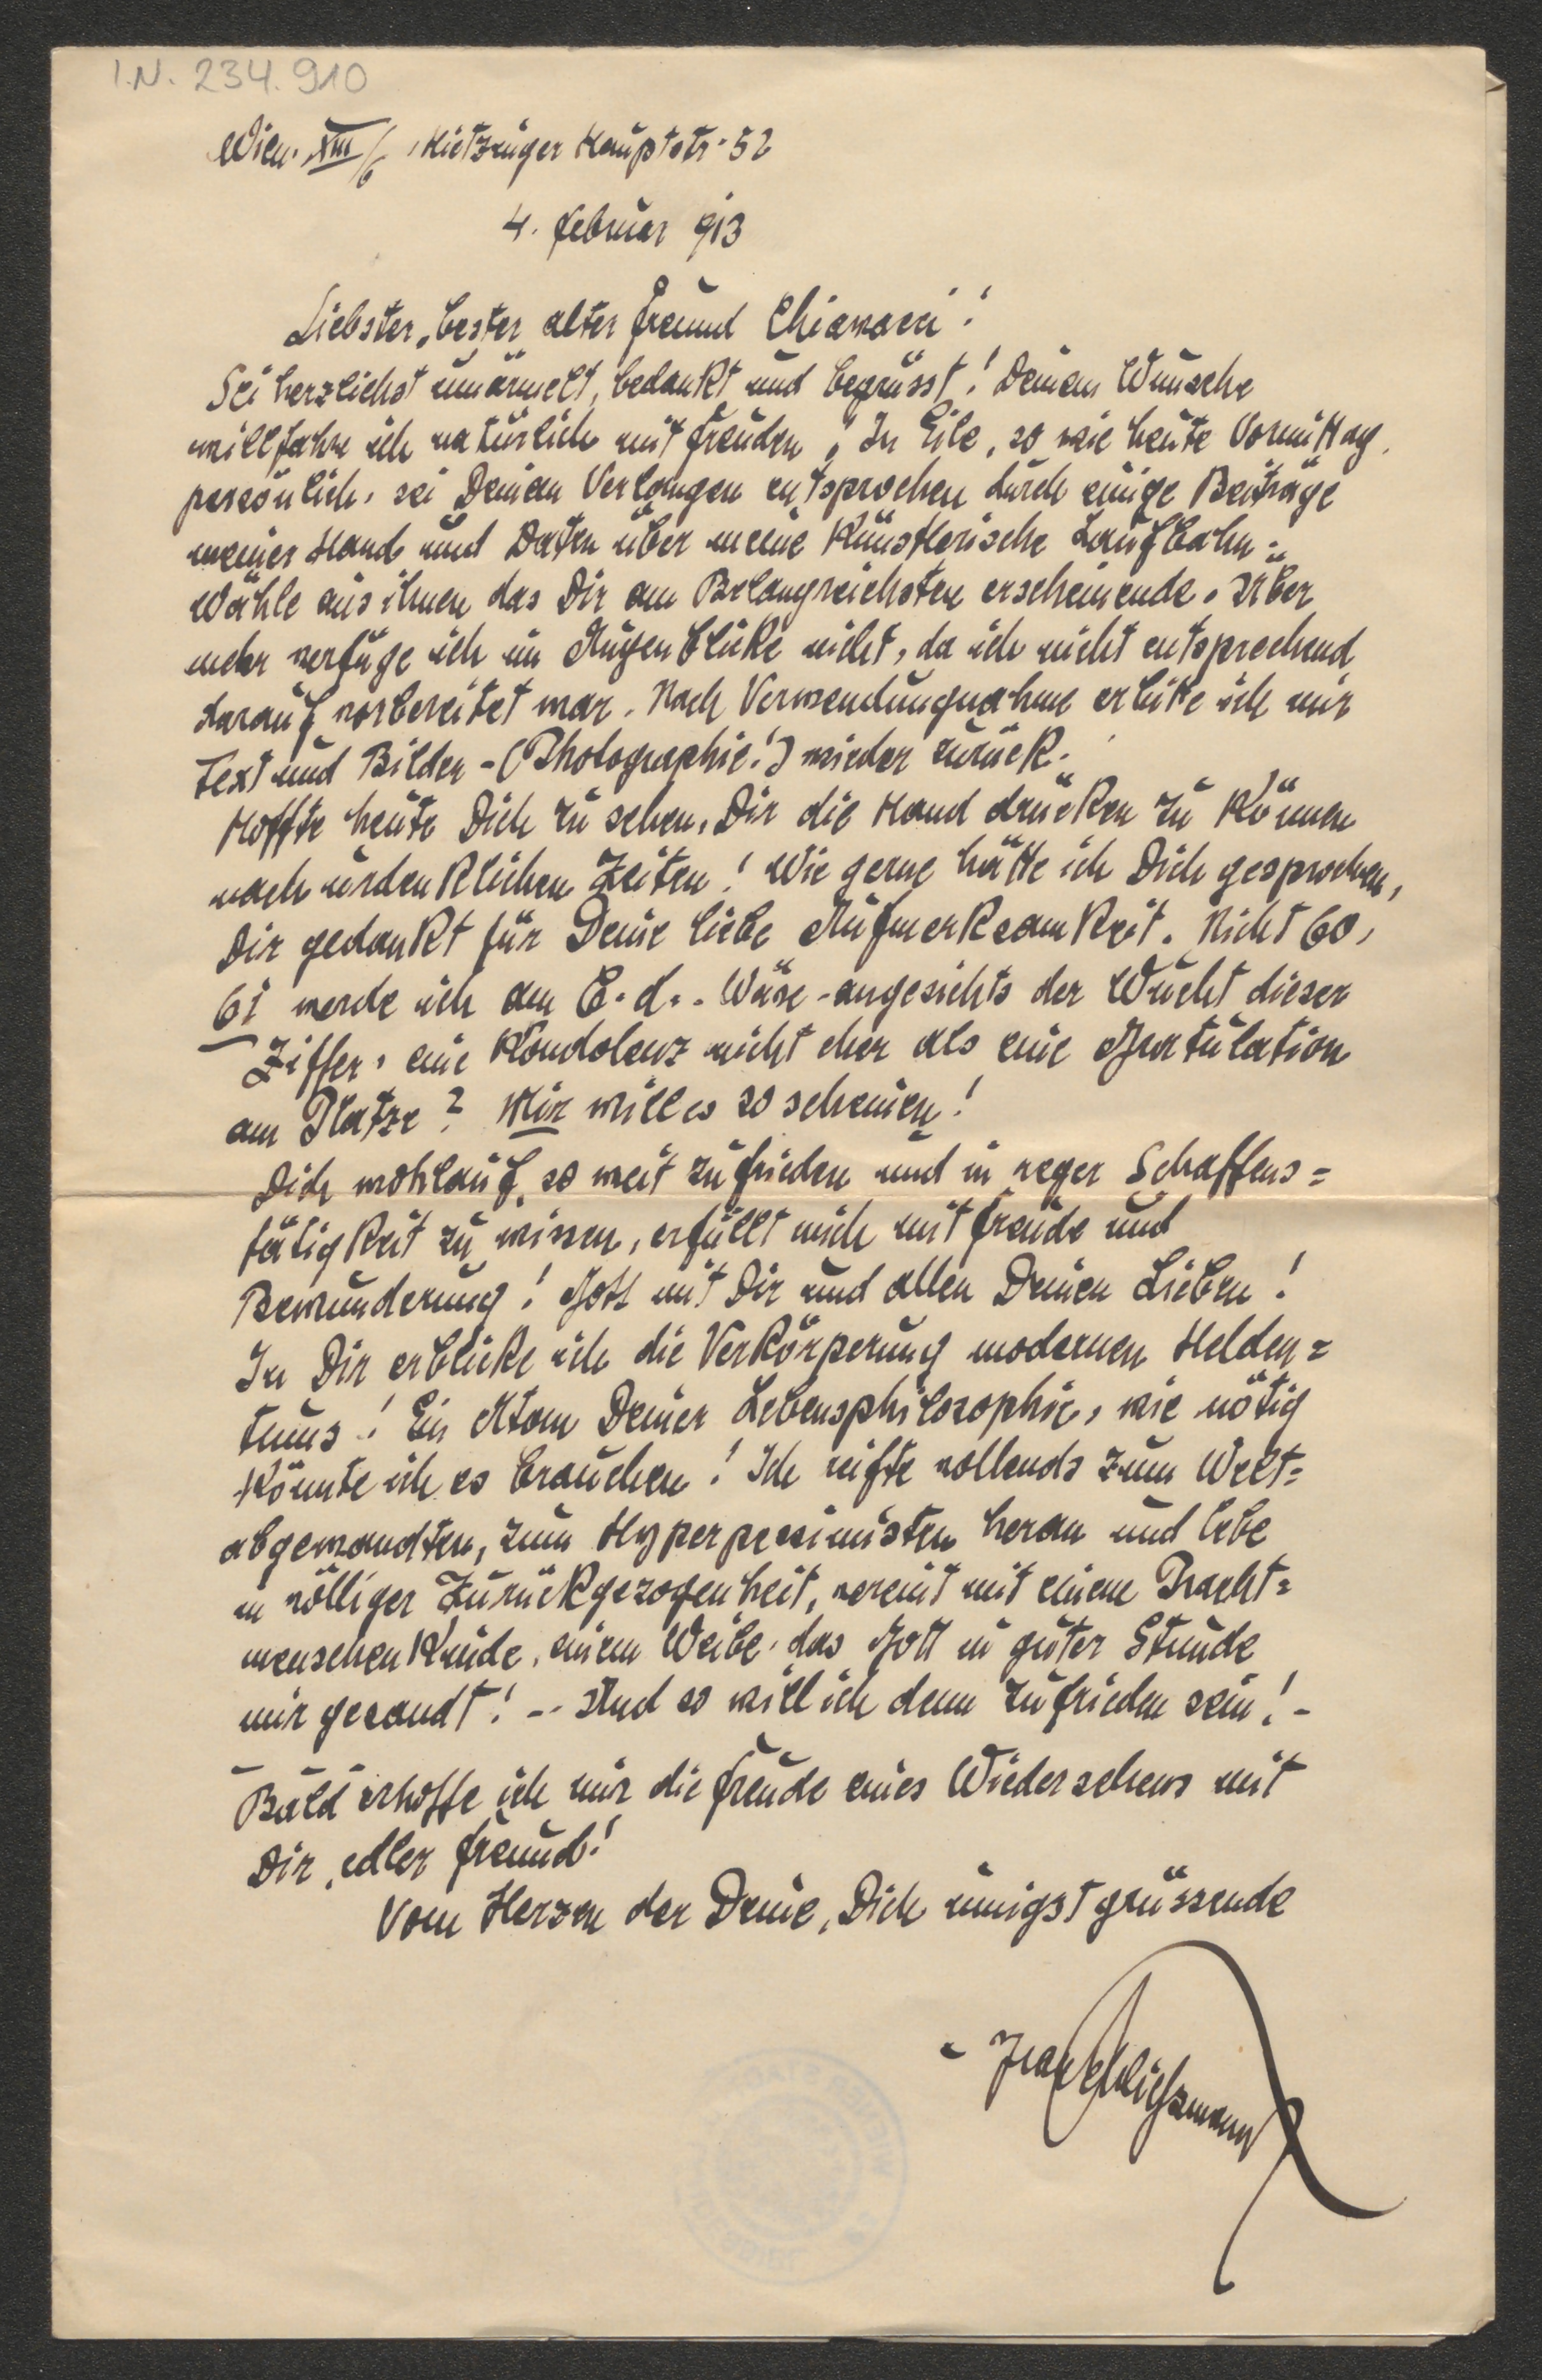 I.N. 234.910
Wien XIII/6, Hietzinger Hauptstr. 52
4. Februar 913
Liebster, bester alter Freund Chiavacci!
Sei herzlichst umärmelt, bedankt und begrüsst! Deinem Wunsche
willfahre ich natürlich mit Freuden. In Eile, so wie heute Vormittag
persönlich, sei Deinem Verlangen entsprochen durch einige Beiträge
meiner Hand und Daten über meine künstlerische Laufbahn.
Wähle aus ihnen das Dir am Belangreichsten erscheinende. Über
mehr verfüge ich im Augenblicke nicht, da ich nicht entsprechend
darauf vorbereitet war. Nach Verwendungnahme erbitte ich mir
Text und Bilder - (Photographie!) wieder zurück.
Hoffte heute Dich zu sehen, Dir die Hand drücken zu können
nach urdenklichen Zeiten! Wie gerne hätte ich Dich gesprochen,
Dir gedankt für Deine liebe Aufmerksamkeit. Nicht 60,
61 werde ich am 6. d.. Wäre - angesichts der Wucht dieser
Ziffer, eine Kondolenz nicht eher als eine Gratulation
am Platze? Mir will es so scheinen!
Dich wohlauf, so weit zufrieden und in reger Schaffens=
tätigkeit zu wissen, erfüllt mich mit Freude und
Bewunderung! Gott mit Dir und allen Deinen Lieben!
In Dir erblicke ich die Verkörperung modernen Helden=
tums! Ein Atom Deiner Lebensphilosophie, wie nötig
könnte ich es brauchen! Ich reifte vollends zum Welt=
abgewandten, zum Hyperpessimisten heran und lebe
in völliger Zurückgezogenheit, vereint mit einem Pracht=
menschenkinde, einem Weibe, das Gott in guter Stunde
mir gesandt! -- Und so will ich denn zufrieden sein! -
- Bald erhoffe ich mir die Freude eines Wiedersehens mit
Dir, edler Freund!
Vom Herzen der Deine, Dich innigst grüssende
- Hans Schließmann